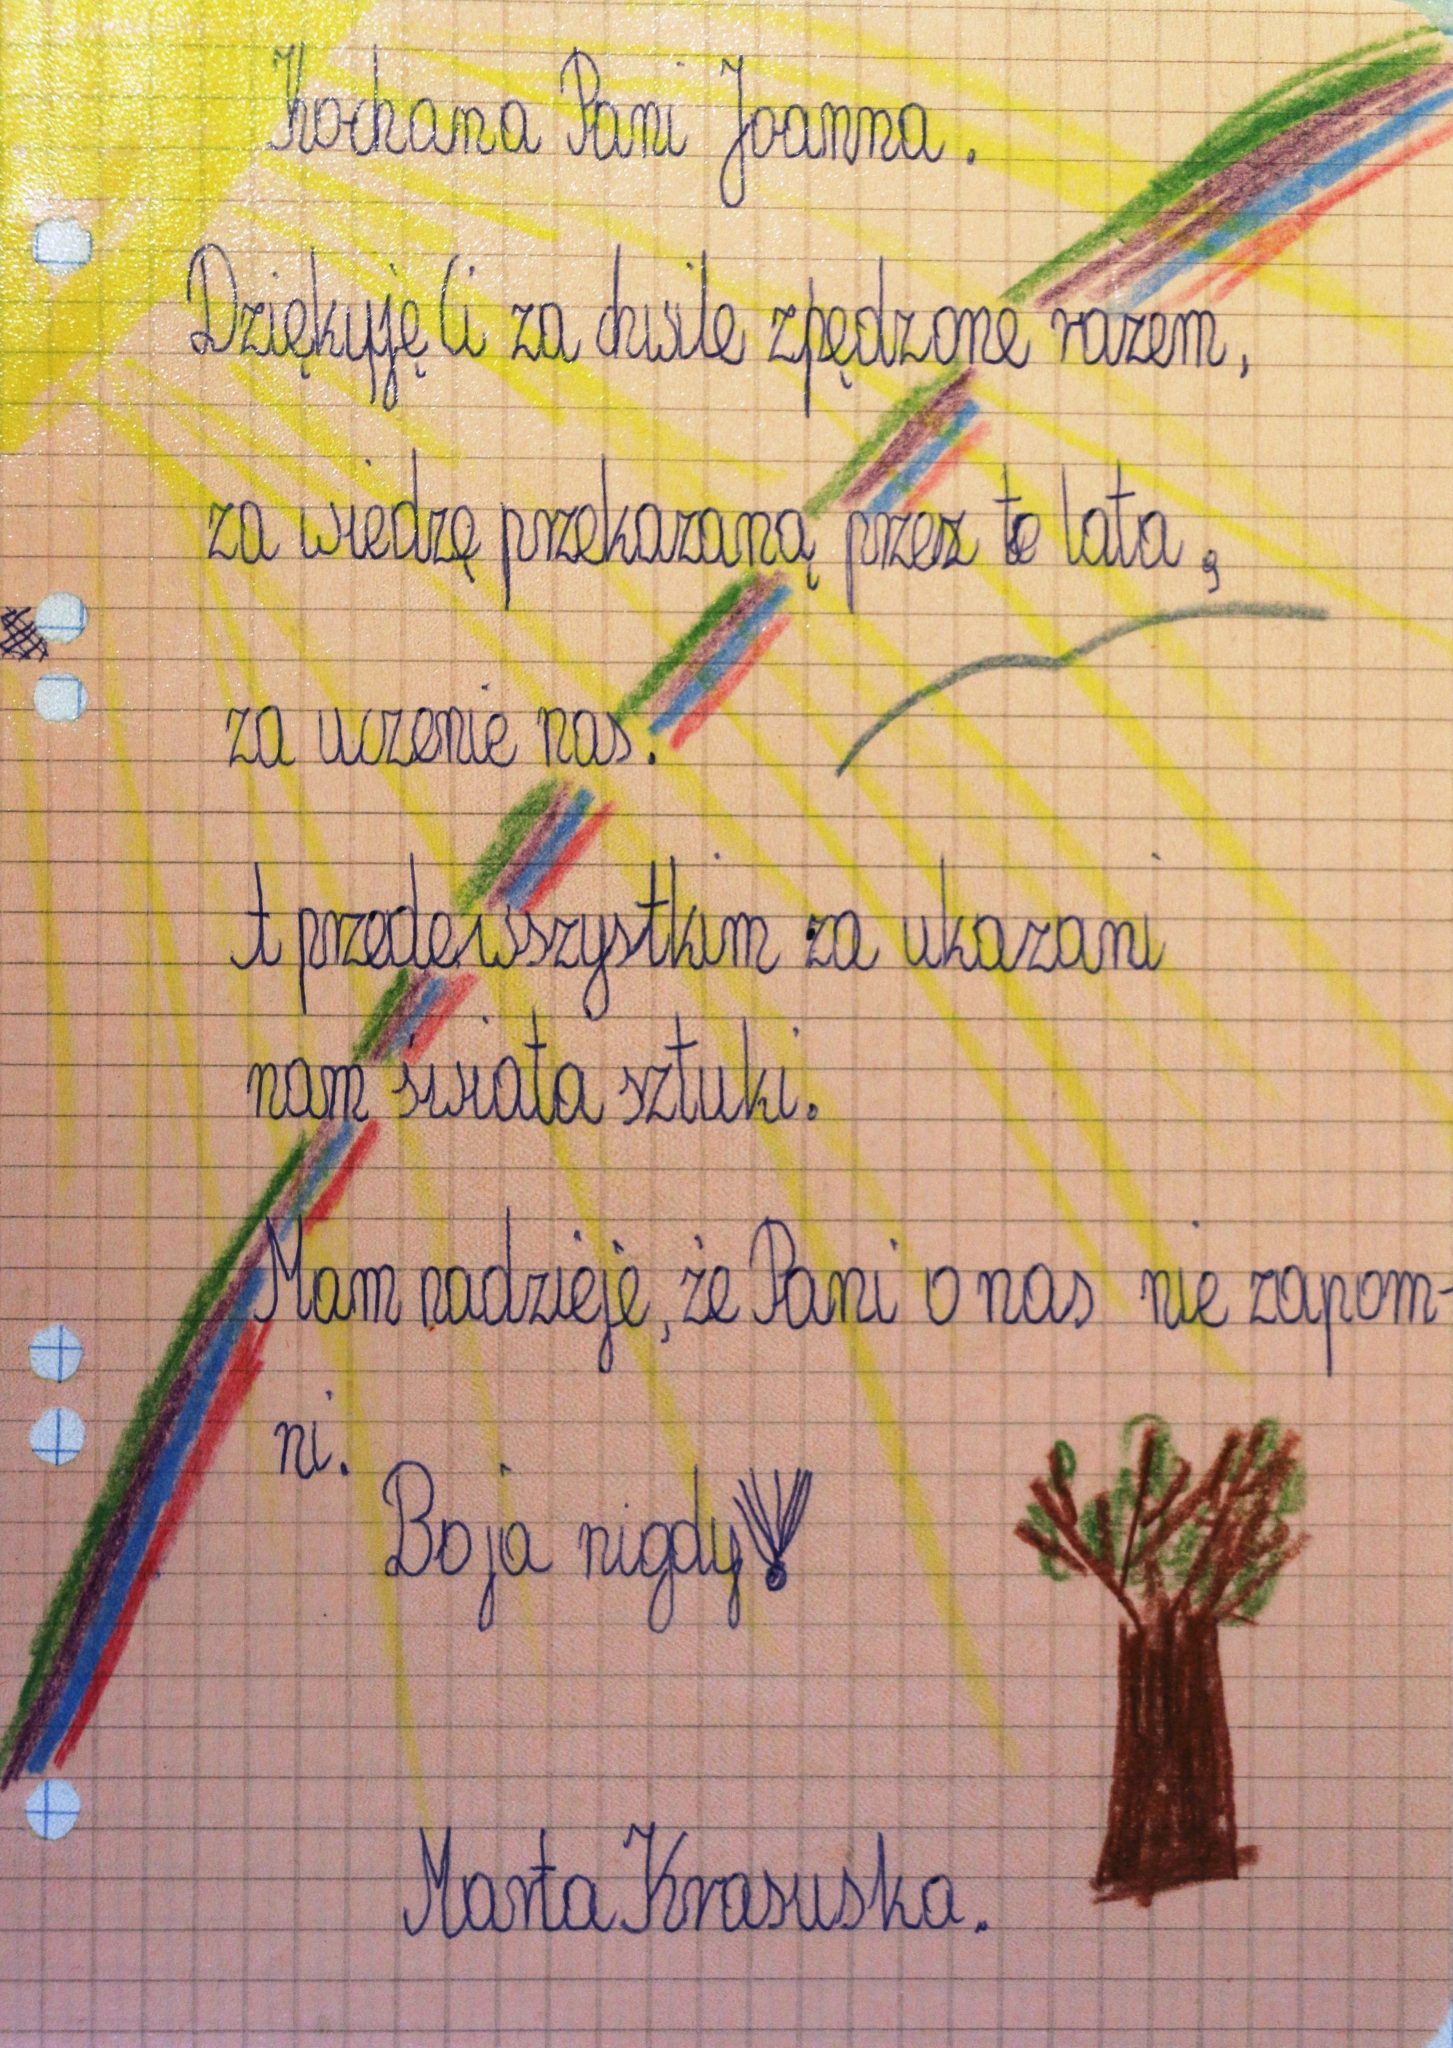 Kochana Pani Joanna.
Dziękyję Ci za chwile zpędzone razem,
za wiedzę przekazaną przez te lata,
za uczenie nas.
A przedewszystkim za ukazani
nam świata sztuki.
Mam nadzieje, że Pani o nas nie zapom-
ni.
Bo ja nigdy!
Marta Krasuska.